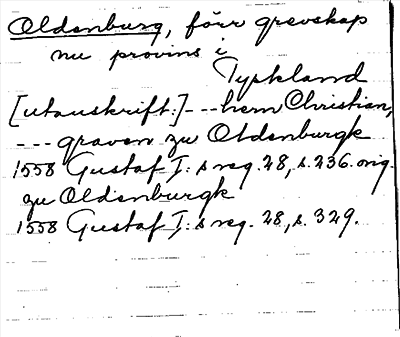 Oldenburg, förr grevskap
nu provins i
Tyskland
[utanskrift:] --- hern Christian,
--- graven zu Oldenburgk
1558 Gustaf I:s reg. 28, s. 236. orig.
zu Oldenburgk
1558 Gustaf I:s reg. 28, s. 329.